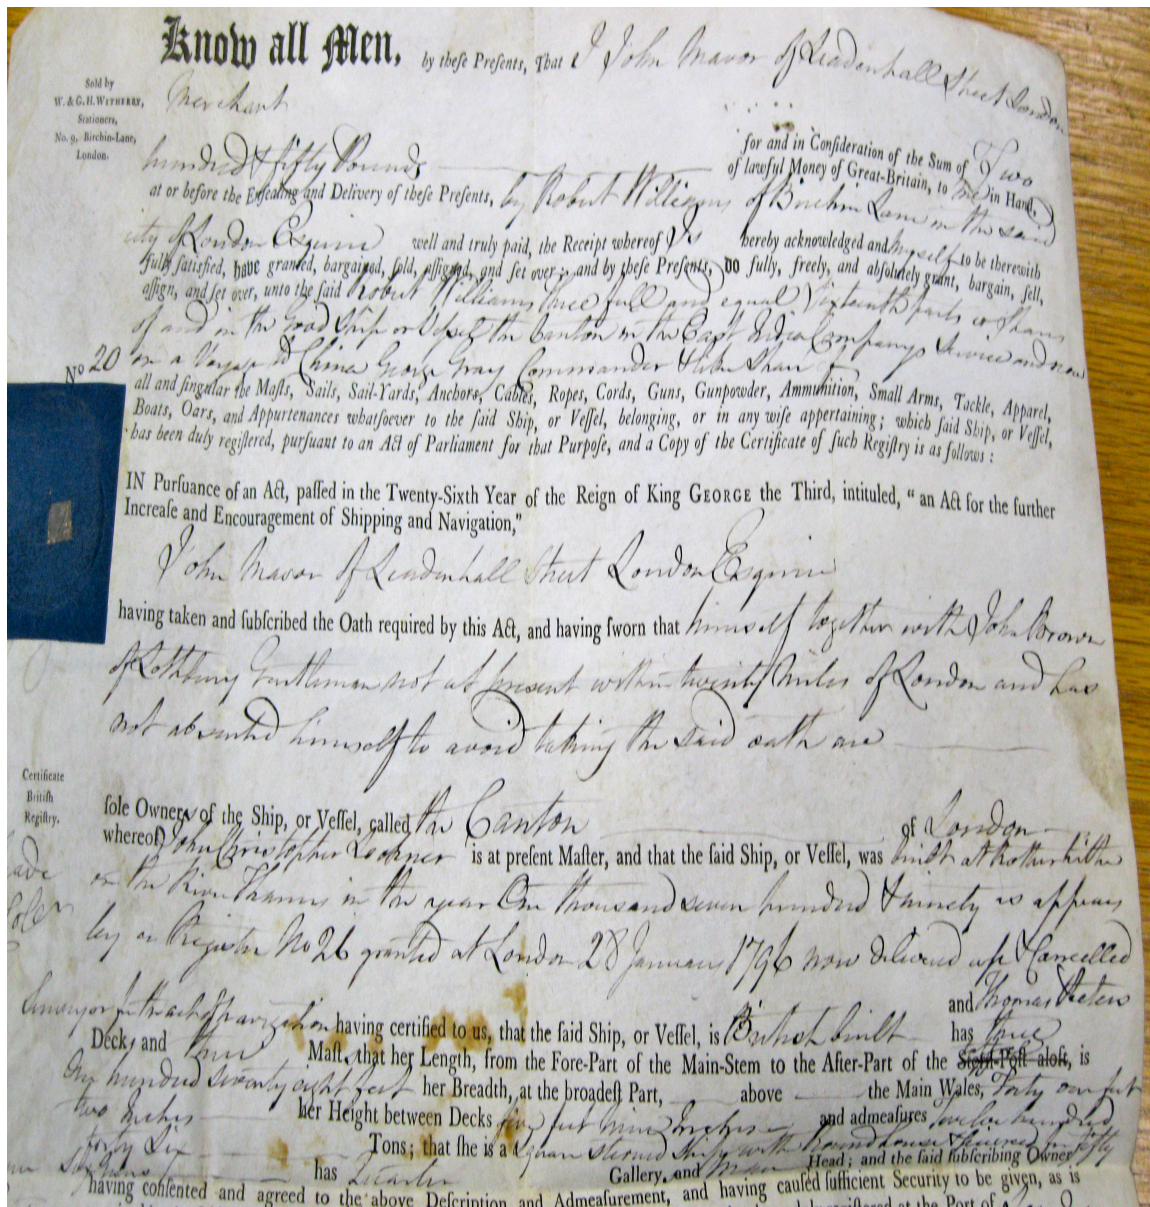 Know all Men, by theſe Preſents, That I John Mavor of Leadenhall Street London
Sold by
W. & G. H. WITHERBY,
Stationers,
No. 9, Birchin-Lane,
London.
Merchant
for and in Conſideration of the Sum of Two
hundred & fifty Pounds of lawful Money of Great-Britain, to me in Hand,
at or before the Enſealing and Delivery of theſe Preſents, by Robert Williams of Birchin Lane in the said
city of London Esquire well and truly paid, the Receipt whereof Is hereby acknowledged and myself to be therewith
fully ſatisfied, have granted, bargained, ſold, aſſigned, and ſet over; and by theſe Preſents, DO fully, freely, and abſolutely grant, bargain, ſell,
aſſign, and ſet over, unto the ſaid Robert Williams three full and equal Sixteenth parts or Shares
of and in the good Ship or Vessel the Canton in the East India Companys Service and now
No 20
on a Voyage to China George Gray Commander
all and ſingular the Maſts, Sails, Sail-Yards, Anchors, Cables, Ropes, Cords, Guns, Gunpowder, Ammunition, Small Arms, Tackle, Apparel,
Boats, Oars, and Appurtenances whatſoever to the ſaid Ship, or Veſſel, belonging, or in any wiſe appertaining; which ſaid Ship, or Veſſel,
has been duly regiſtered, purſuant to an Act of Parliament for that Purpoſe, and a Copy of the Certificate of ſuch Regiſtry is as follows:
IN Purſuance of an Act, paſſed in the Twenty-Sixth Year of the Reign of King GEORGE the Third, intituled, “ an Act for the further
Increaſe and Encouragement of Shipping and Navigation,”
John Mavor of Leadenhall Street London Esquire
having taken and ſubſcribed the Oath required by this Act, and having ſworn that himself together with John Brown
of Lothbury Gentleman not at present within twenty Miles of London and has
not absented himself to avoid taking the said oath are
Certificate
Britiſh
Regiſtry.
ſole Owners of the Ship, or Veſſel, called the Canton of London
whereof John Christopher Lochner is at preſent Maſter, and that the ſaid Ship, or Veſſel, was built at Rotherhithe
on the River Thames in the year One thousand seven hundred & ninety as appears
by a Register No 26 granted at London 28 January 1796 now delivered up & Cancelled
and Thomas
Surveyor for the act of navigation having certified to us, that the ſaid Ship, or Veſſel, is British built has three
Decks and three Maſt, that her Length, from the Fore-Part of the Main-Stem to the After-Part of the Stern-Poſt aloft, is
One hundred seventy eight feet her Breadth, at the broadeſt Part, above the Main Wales, Forty one feet
two Inches her Height between Decks five feet nine Inches and admeaſures Twelve hundred
forty Six Tons; that ſhe is a Square Sterned Ship with Roundhouse
has Quarter Gallery, and Man Head; and the ſaid ſubſcribing Owner
having conſented and agreed to the above Deſcription and Admeaſurement, and having cauſed ſufficient Security to be given, as is